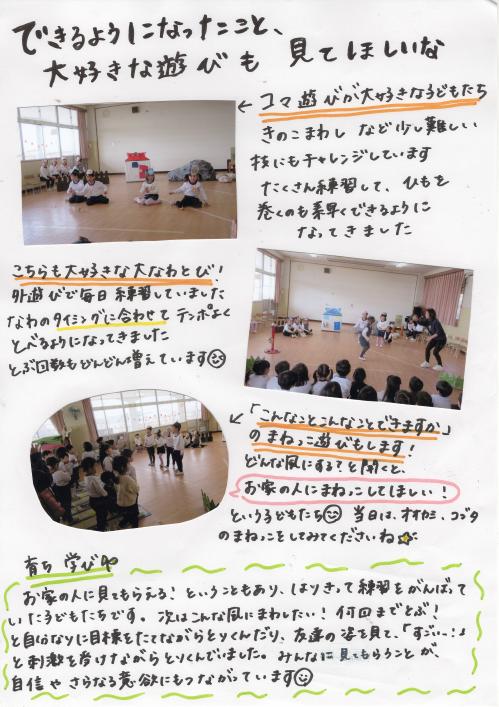 できるようになったこと、
大好きな遊びも 見てほしいな
← コマ遊びが大好きな子どもたち
きのこまわし など少し難しい
技にもチャレンジしています
たくさん練習して、ひもを
巻くのも素早くできるように
なってきました
こちらも大好きな大なわとび！
外遊びで毎日練習していました
なわのタイミングに合わせて テンポよく
とべるようになってきました
とぶ回数もどんどん増えています
←「こんなことこんなことできますか」
のまねっこ遊びもします！
どんな風にする？と聞くと、
お家の人にまねっこしてほしい！
という子どもたち 当日は、オオカミ、コブタ
のまねっこをしてみてくださいね
育ち 学び
お家の人に見てもらえる！ということもあり、はりきって練習をがんばって
いた子どもたちです。次はこんな風にまわしたい！何回までとぶ！
と自分なりに目標をたてながらとりくんだり、友達の姿を見て、「すごい！」
と刺激を受けながらとりくんでいました。みんなに見てもらうことが、
自信や さらなる意欲にもつながっています